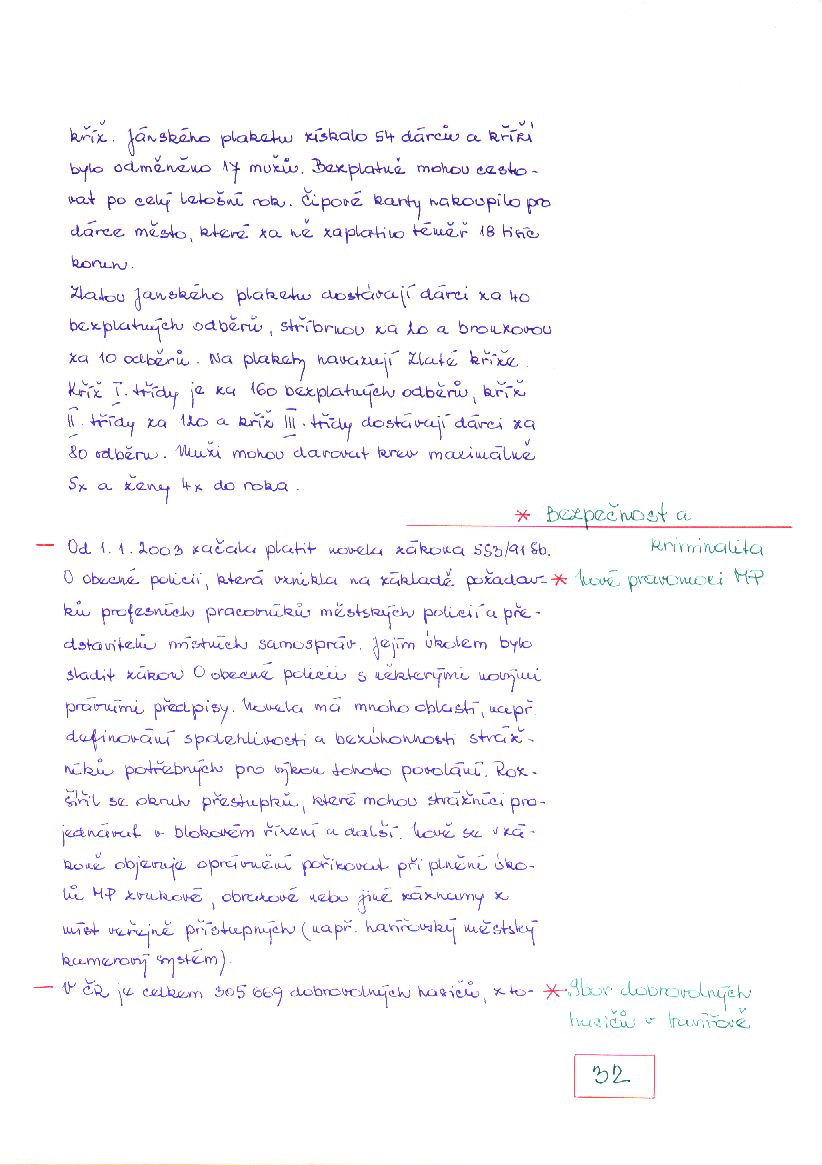 kříž. Jánského plaketu získalo 54 dárců a kříží
bylo odměněno 17 mužů. Bezplatně mohou cesto-
vat po celý letošní rok. Čipové karty nakoupilo pro
dárce město, které za ně zaplatilo téměř 18 tisíc
korun.
Zlatou Janského plaketu dostávají dárci za 40
bezplatných odběrů, stříbrnou za 20 a bronzovou
za 10 odběrů. Na plakety navazují Zlaté kříže.
Kříž I. třídy je za 160 bezplatných odběrů, kříž
II. třídy za 120 a kříž III. třídy dostávají dárci za
80 odběru. Muži mohou darovat krev maximálně
5x a ženy 4x do roka.
* Bezpečnost a
kriminalita
— Od 1. 1. 2003 začala platit novela zákona 553/91 Sb.
O obecné policii, která vznikla na základě požadav-
* Nové pravomoci MP
ků profesních pracovníků městských policií a pře-
dstavitelů místních samospráv. Jejím úkolem bylo
sladit zákon O obecné policii s některými novými
právními předpisy. Novela má mnoho oblastí, např.
definování spolehlivosti a bezúhonnosti stráž-
níků potřebných pro výkon tohoto povolání. Roz-
šířil se okruh přestupků, které mohou strážníci pro-
jednávat v blokovém řízení a další. Nově se v zá-
koně objevuje oprávnění pořizovat při plnění úko-
lů MP zvukové, obrazové nebo jiné záznamy z
míst veřejně přístupných (např. havířovský městský
kamerový systém).
— V ČR je celkem 305 669 dobrovolných hasičů, z to-
* Sbor dobrovolných
hasičů v Havířově
32